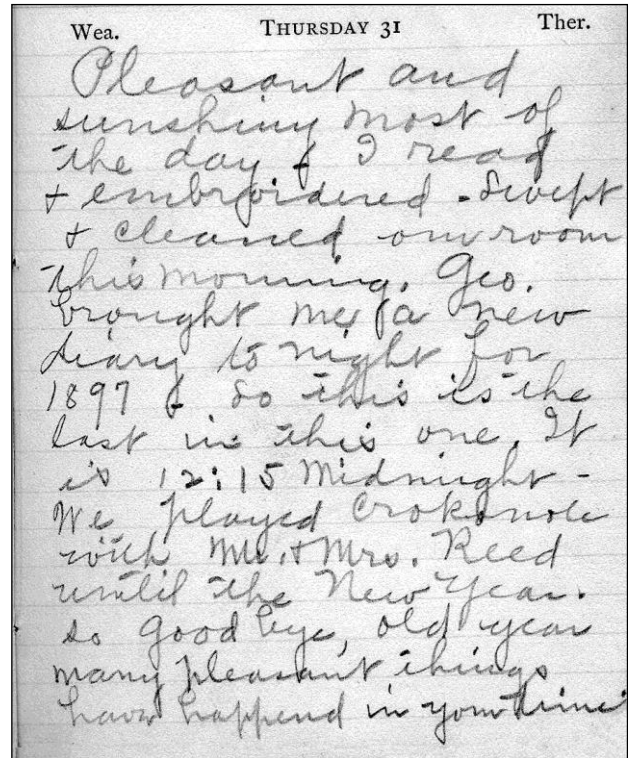 Wea. THURSDAY 31 Ther.
Pleasant and
sunshiny most of
the day & I read
+ embroidered - Swept
+ cleaned our room
this morning. Geo.
brought me a new
diary to night for
1897 & so this is the
last in this one. It
is 12:15 Midnight -
We played Crokonole
with Mr. + Mrs. Reed
until the New Year.
so good bye, old year
many pleasant things
have happend in your time